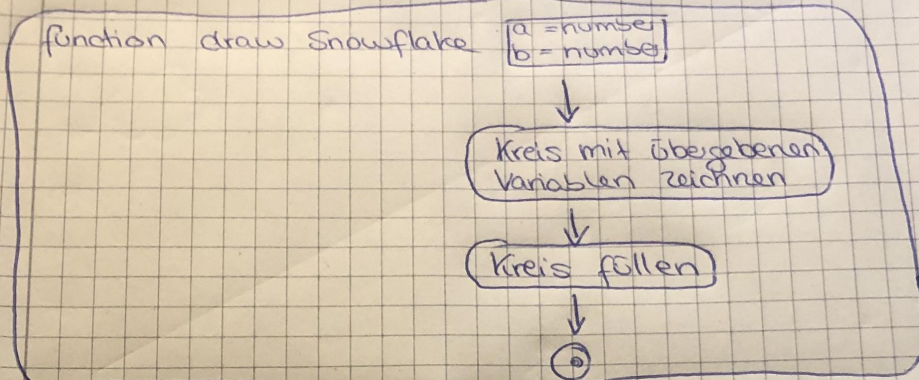 function draw Snowflake
a = number
b = number
Kreis mit übergebenen
Variablen zeichnen
Kreis füllen